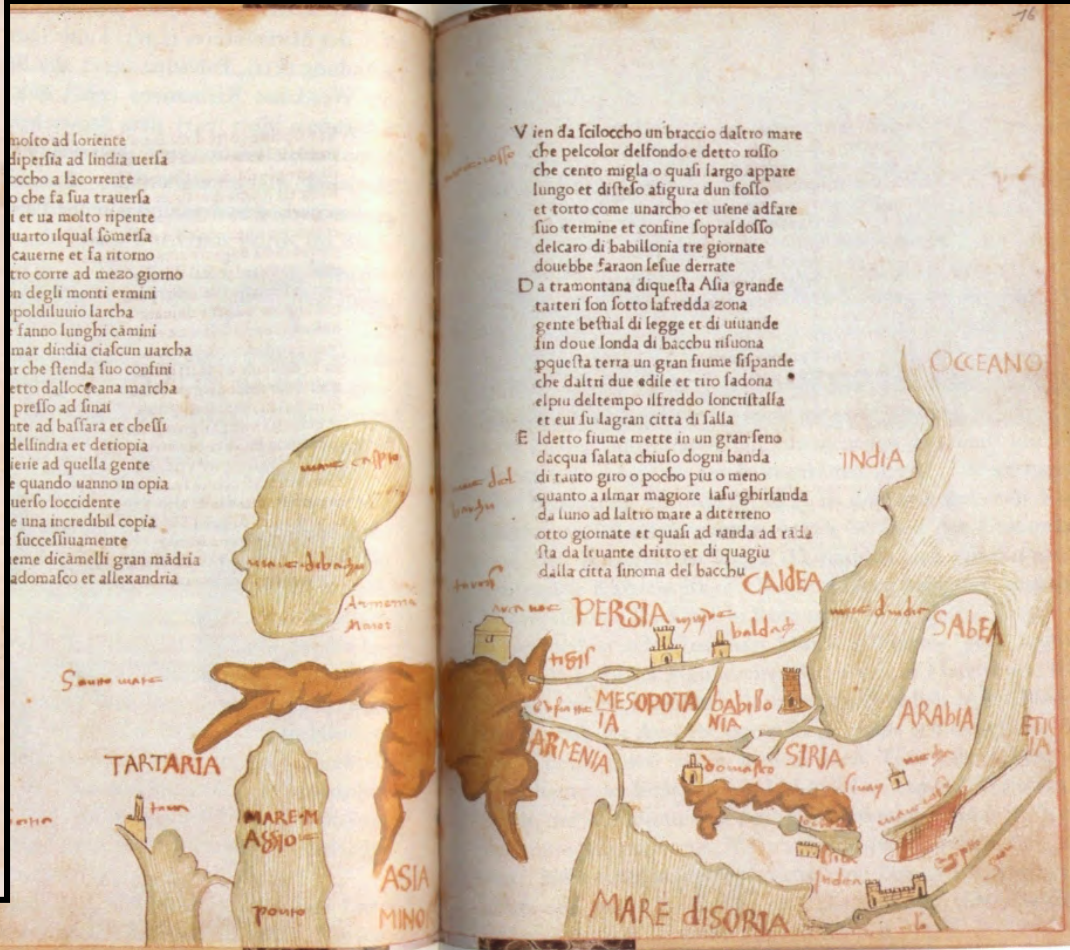 molto ad loriente
dipersia ad lindia uersa
occho a lacorrente
o che fa sua trauersa
i et ua molto ripente
uarto ilqual somersa
cauerne et fa ritorno
tro corre ad mezo giorno
n degli monti ermini
popoldiluuio larcha
e fanno lunghi camini
mar dindia ciascun uarcha
ar che stenda suo confini
etto dalloceana marcha
presso ad sinai
nte ad bassara et chessi
dellindia et detiopia
ierie ad quella gente
e quando uanno in opia
uerso loccidente
e una incredibil copia
successiuamente
eme dicamelli gran mādria
adomasco et allexandria
mare caspio
mare dibachu
Armenia
Maior
TARTARIA
MARE M
AGGIO
ponto
ASIA
MINO
16
mare rosso
V ien da sciloccho un braccio dastro mare
che pelcolor delfondo e detto rosso
che cento migla o quasi largo appare
lungo et disteso afigura dun fosso
et torto come unarcho et uiene adfare
suo termine et confine sopraldosso
delcaro di babillonia tre giornate
douebbe faraon lesue derrate
D a tramontana diquesta Asia grande
tarteri son sotto lafredda zona
gente bestial di legge et di uiuande
fin doue londa di bacchu risuona
pquesta terra un gran fiume sispande
che daltri due edile et tiro sadona
elpiu deltempo ilfreddo loncristalla
et eui su lagran citta di salla
E ldetto fiume mette in un gran seno
dacqua salata chiuso dogni banda
di tanto giro o pocho piu o meno
quanto a ilmar magiore lasu ghirlanda
da luno ad laltro mare a diterreno
otto giornate et quasi ad randa ad rāda
sta da leuante dritto et di quagiu
dalla citta sinoma del bacchu
mare del
bacchu
OCCEANO
INDIA
CALDEA
PERSIA
baldach
mare dindia
SABEA
tigis
MESOPOTA
IA
babillo
NIA
ARABIA
ARMENIA
SIRIA
domasco
MARE dISORIA